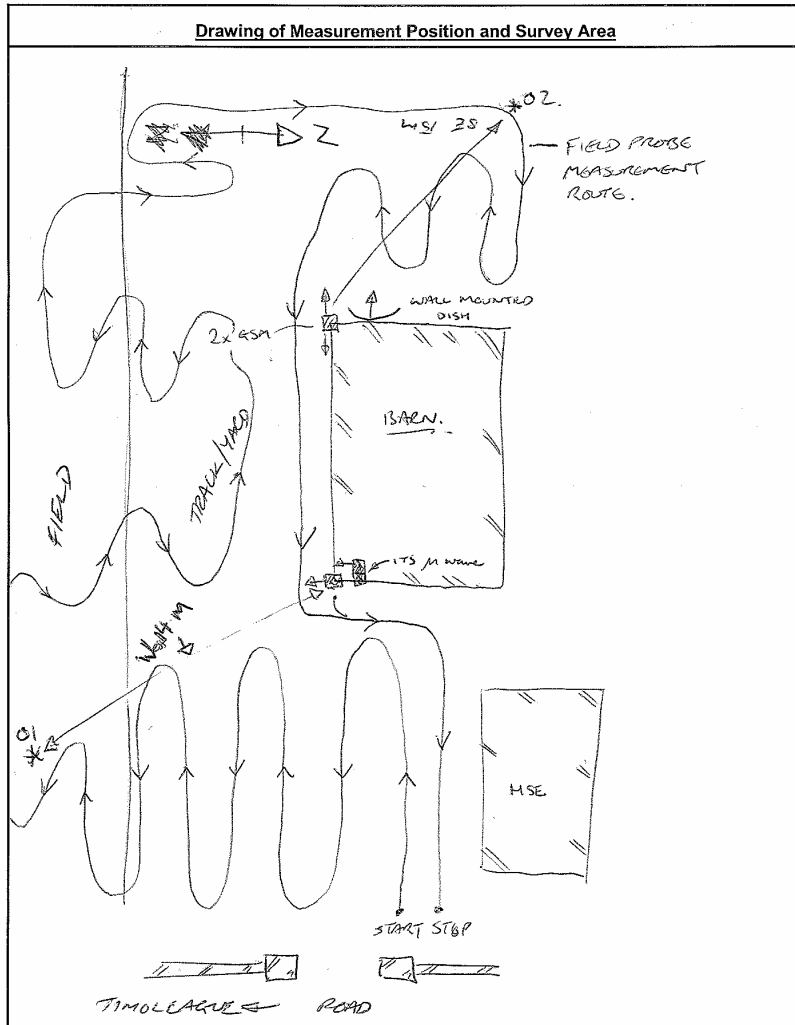 Drawing of Measurement Position and Survey Area
02.
FIELD PROBE
MEASUREMENT
ROUTE.
Z
WALL MOUNTED
DISH
2x GSM
BARN.
TRACK/YARD
FIELD
ITS M WAVE
01
MSE
START STOP
TIMOLEAGUE
ROAD